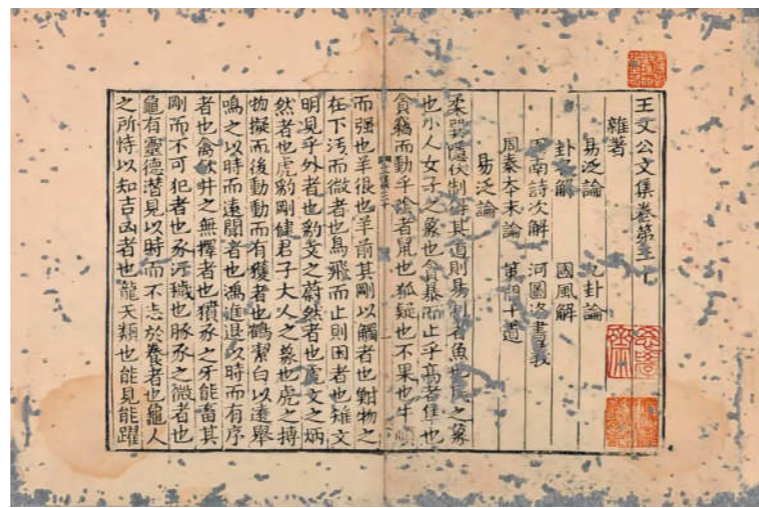 王文公文集卷第三十
雜著
易泛論 九卦論
卦名解 國風解
周南詩次解 河圖洛書義
周秦本末論 策問十道
易泛論
柔巽隱伏制得其道則易制者魚也民之象
也小人女子之象也貪暴而止乎高者隼也
貪竊而動乎陰者鼠也狐疑也不果也牛順
而强也羊很也羊前其剛以觸者也對物之
在下汚而微者也鳥飛而止則困者也雉文
明見乎外者也豹文之蔚然者也虎文之炳
然者也虎豹剛健君子大人之象也虎之搏
物擬而後動動而有獲者也鶴潔白以遠舉
鳴之以時而遠聞者也鴻進退以時而有序
者也禽伏井之無擇者也豶豕之牙能畜其
剛而不可犯者也豕汚穢也豚豕之微者也
龜有靈德潛見以時而不志於養者也龜人
之所恃以知吉凶者也龍天類也能見能躍